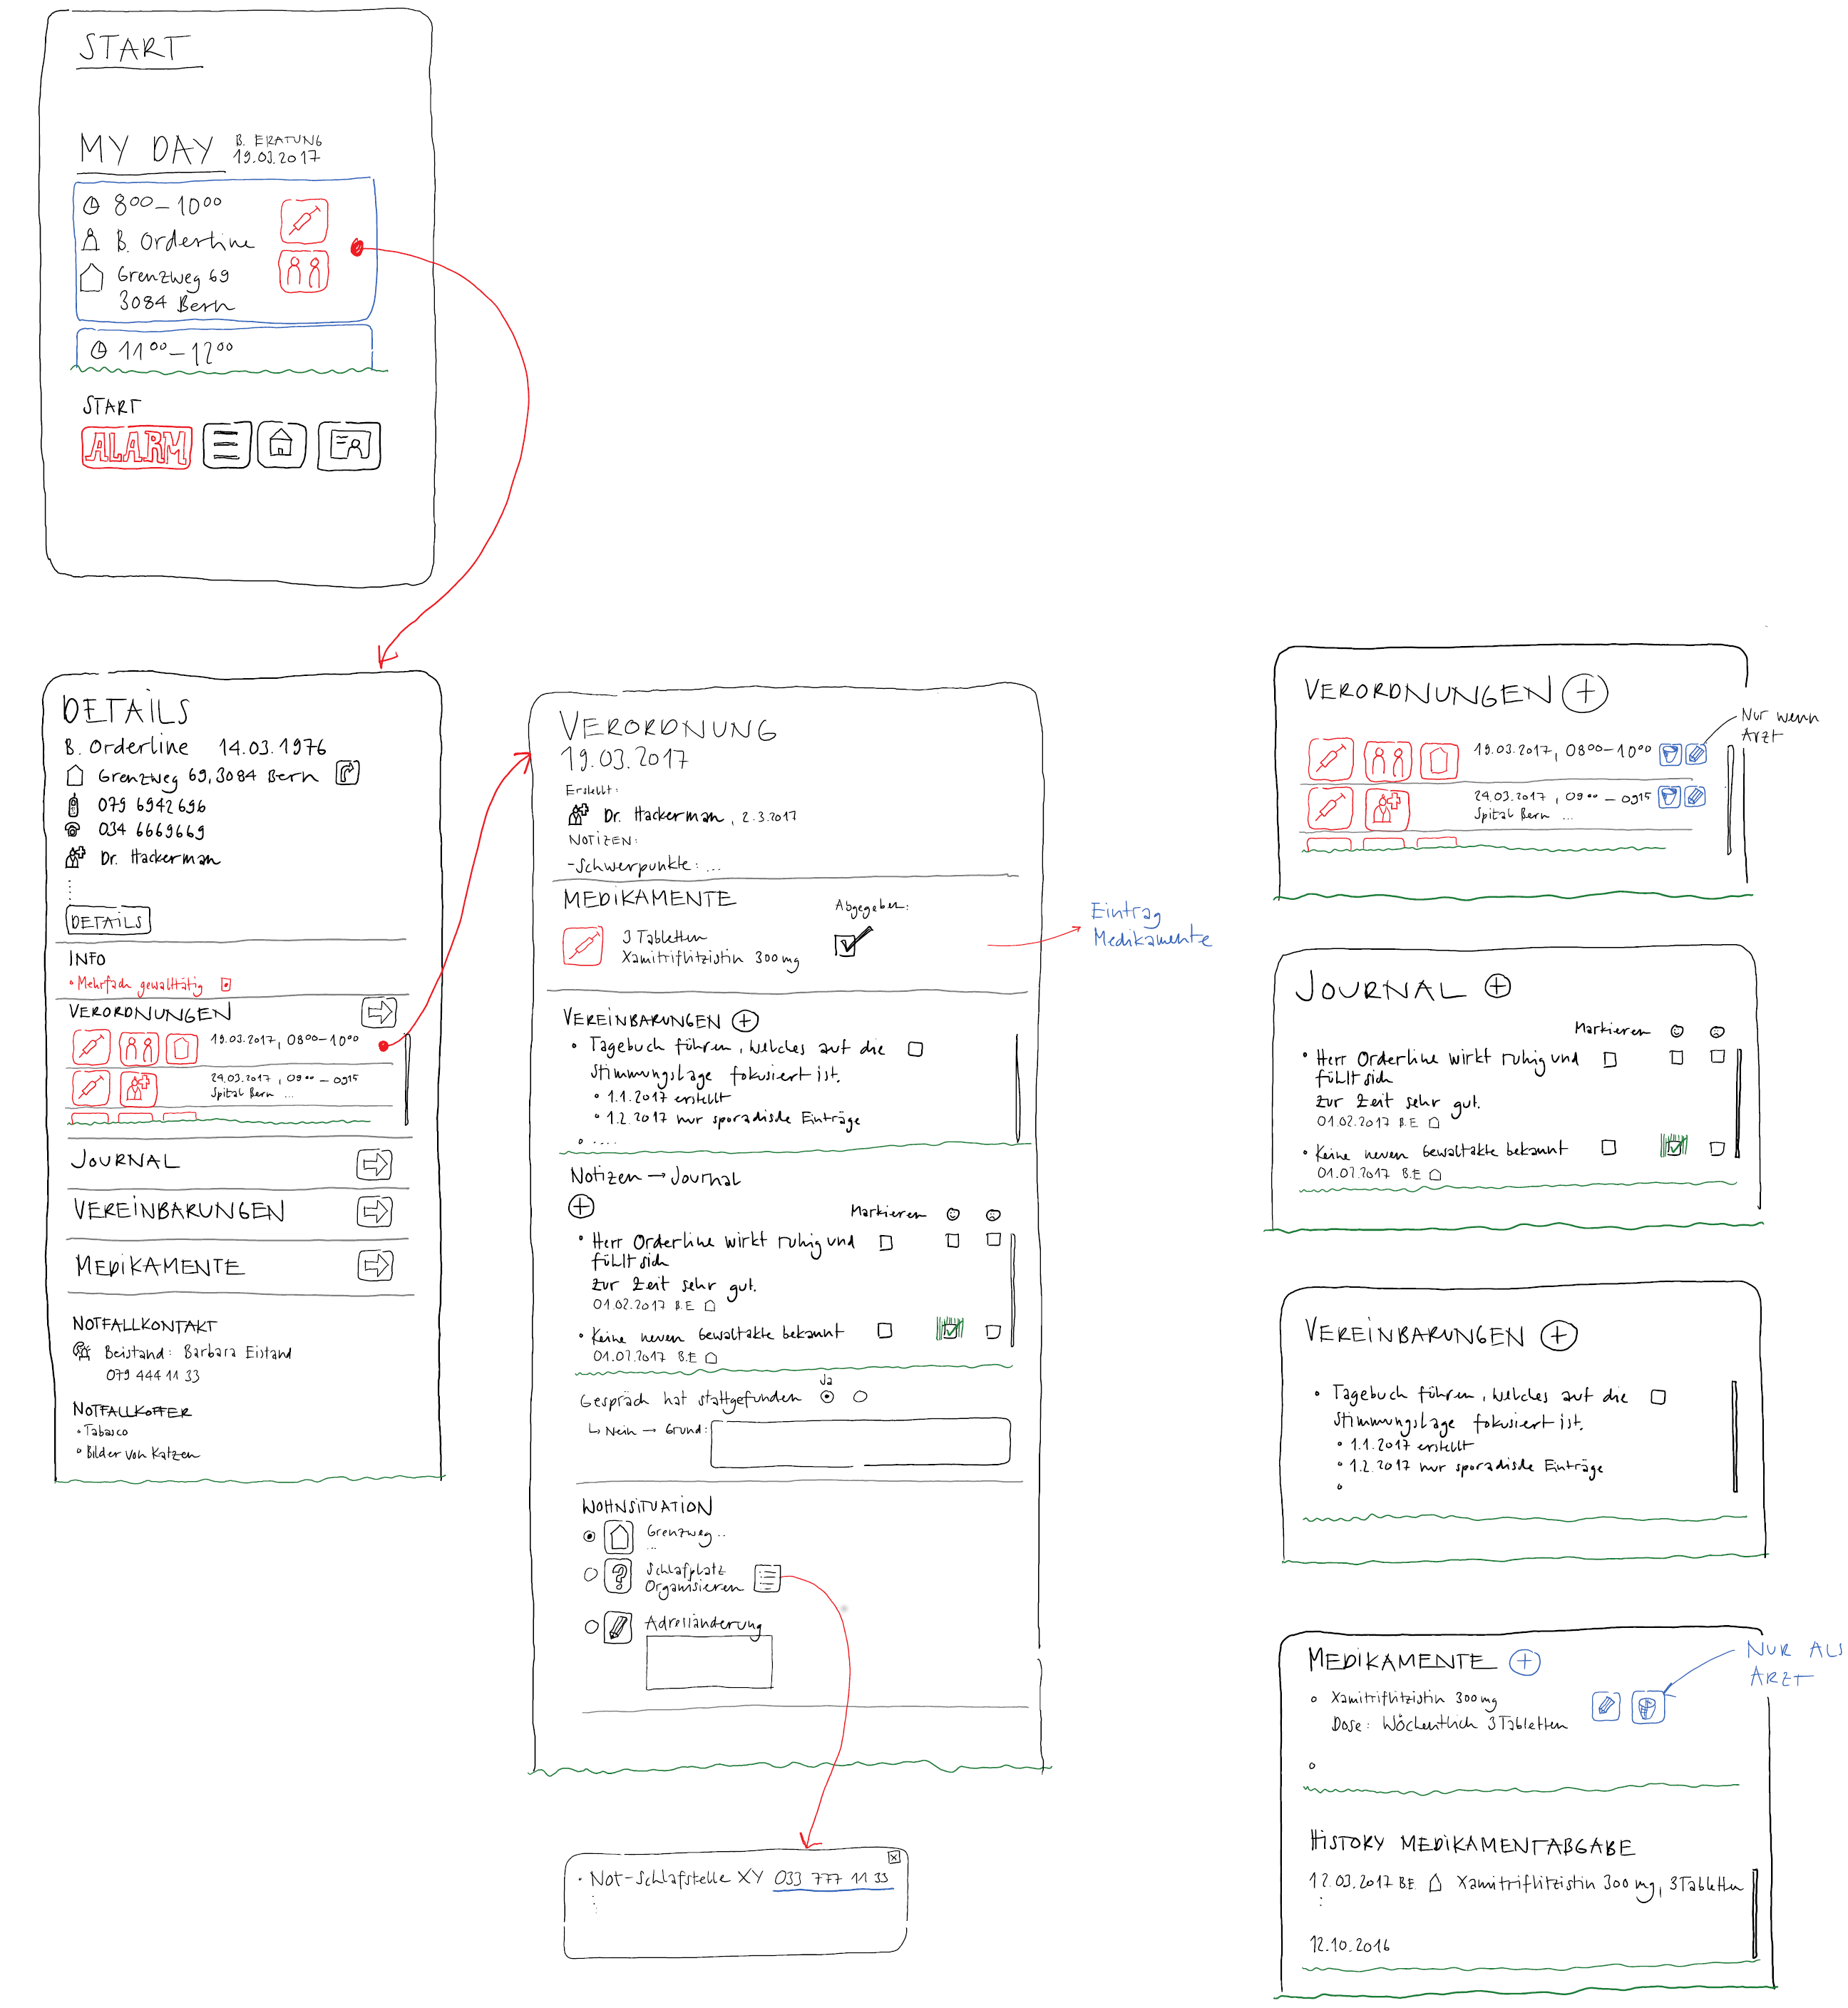 START
MY DAY
B. ERATUNG
19.03.2017
8⁰⁰–10⁰⁰
B. Orderline
Grenzweg 69
3084 Bern
11⁰⁰–12⁰⁰
START
ALARM
DETAILS
B. Orderline 14.03.1976
Grenzweg 69, 3084 Bern
079 6942696
034 6669669
Dr. Hackerman
DETAILS
INFO
• Mehrfach gewalttätig
VERORDNUNGEN
19.03.2017, 08⁰⁰–10⁰⁰
24.03.2017, 09⁰⁰ – 0915
Spital Bern ...
JOURNAL
VEREINBARUNGEN
MEDIKAMENTE
NOTFALLKONTAKT
Beistand: Barbara Eistand
079 444 11 33
NOTFALLKOFFER
• Tabasco
• Bilder von Katzen
VERORDNUNG
19.03.2017
Erstellt:
Dr. Hackerman, 2.3.2017
NOTIZEN:
- Schwerpunkte: ...
MEDIKAMENTE
Abgegeben:
3 Tabletten
Xamitriflitzistin 300 mg
Eintrag
Medikamente
VEREINBARUNGEN +
• Tagebuch führen, welches auf die
Stimmungslage fokusiert ist.
• 1.1.2017 erstellt
• 1.2.2017 nur sporadische Einträge
• ....
Notizen → Journal
+
Markieren
• Herr Orderline wirkt ruhig und
fühlt sich
zur Zeit sehr gut.
01.02.2017 B.E
• Keine neuen Gewaltakte bekannt
01.02.2017 B.E
Ja
Gespräch hat stattgefunden
↳ Nein → Grund:
WOHNSITUATION
Grenzweg ..
...
?
Schlafplatz
Organisieren
Adressänderung
• Not-Schlafstelle XY 033 777 11 33
VERORDNUNGEN +
Nur wenn
Arzt
19.03.2017, 08⁰⁰–10⁰⁰
24.03.2017, 09⁰⁰ – 0915
Spital Bern ...
JOURNAL +
Markieren
• Herr Orderline wirkt ruhig und
fühlt sich
zur Zeit sehr gut.
01.02.2017 B.E
• Keine neuen Gewaltakte bekannt
01.02.2017 B.E
VEREINBARUNGEN +
• Tagebuch führen, welches auf die
Stimmungslage fokusiert ist.
• 1.1.2017 erstellt
• 1.2.2017 nur sporadische Einträge
MEDIKAMENTE +
NUR ALS
ARZT
• Xamitriflitzistin 300 mg
Dose: Wöchentlich 3 Tabletten
HISTORY MEDIKAMENTABGABE
12.03.2017 B.E. Xamitriflitzistin 300 mg, 3 Tabletten
12.10.2016